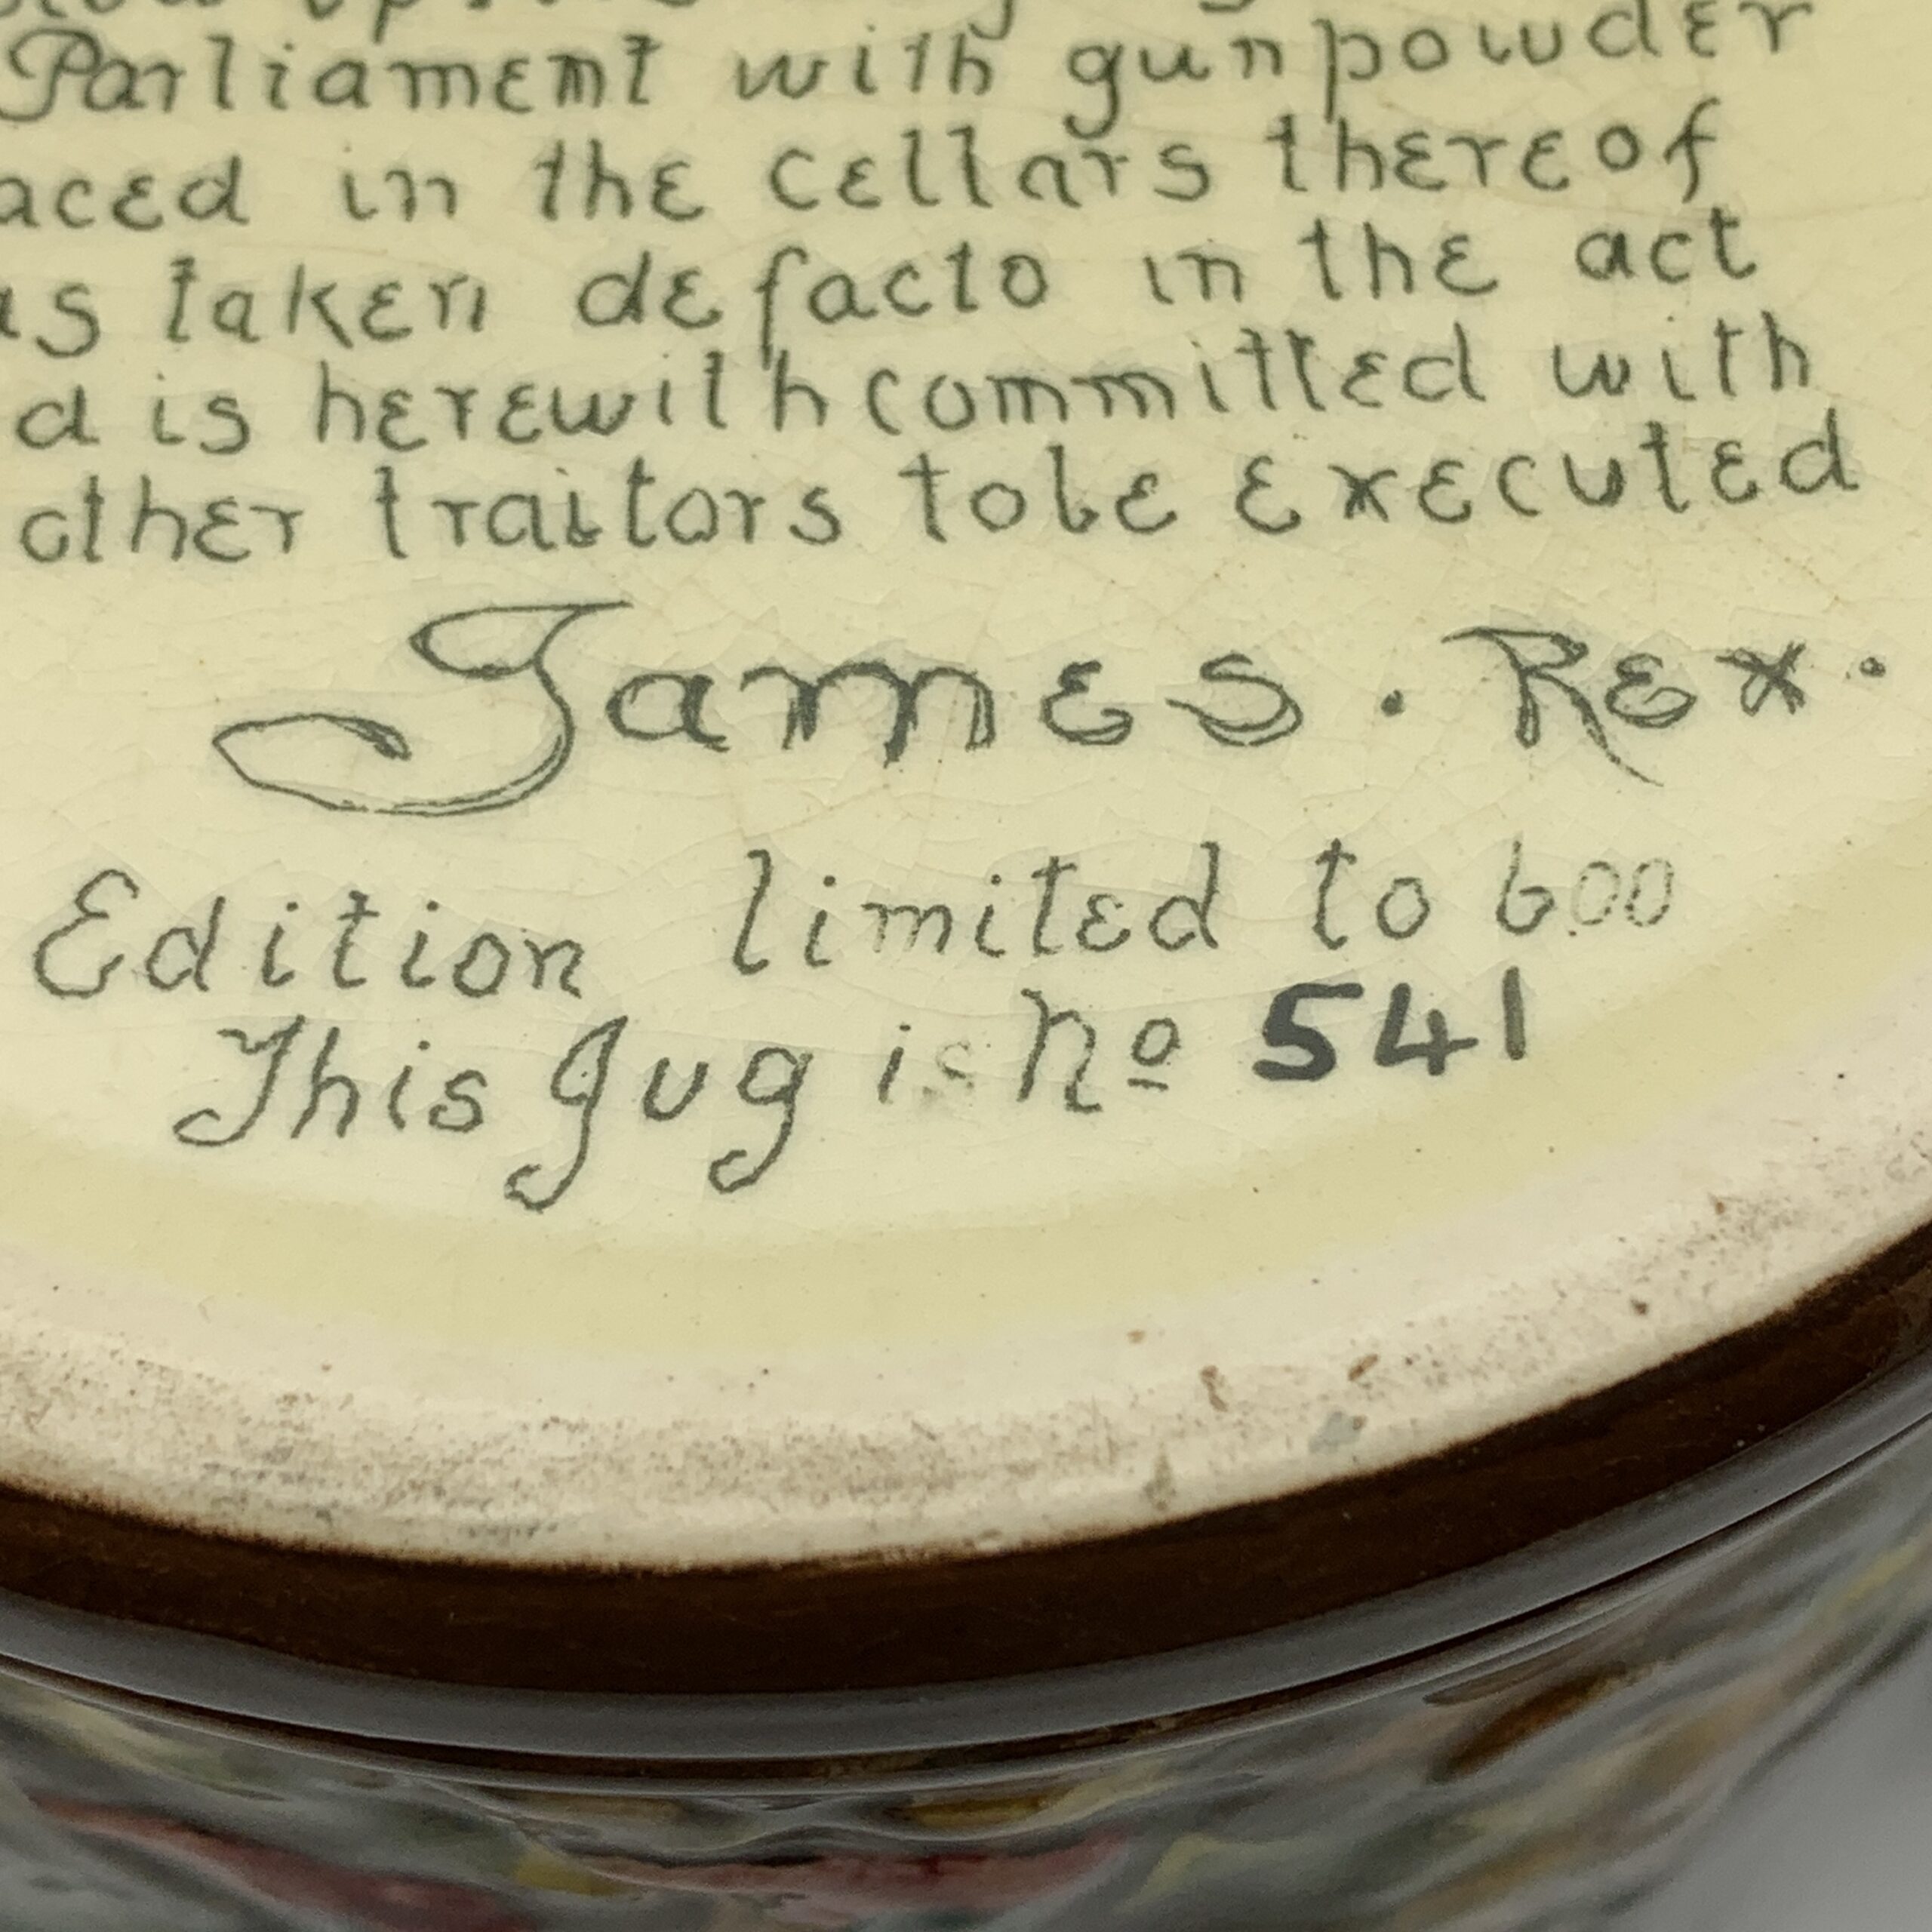 Parliament with gunpowder
aced in the cellars thereof
as taken defacto in the act
d is herewith committed with
other traitors to be executed
James · Rex ·
Edition limited to 600
This Jug is No 541